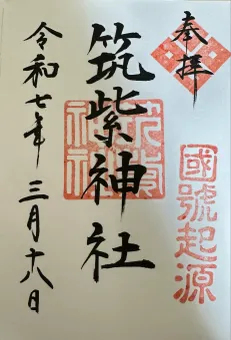 奉拝
國號起源
筑紫神社
筑紫神社
令和七年 三月十八日